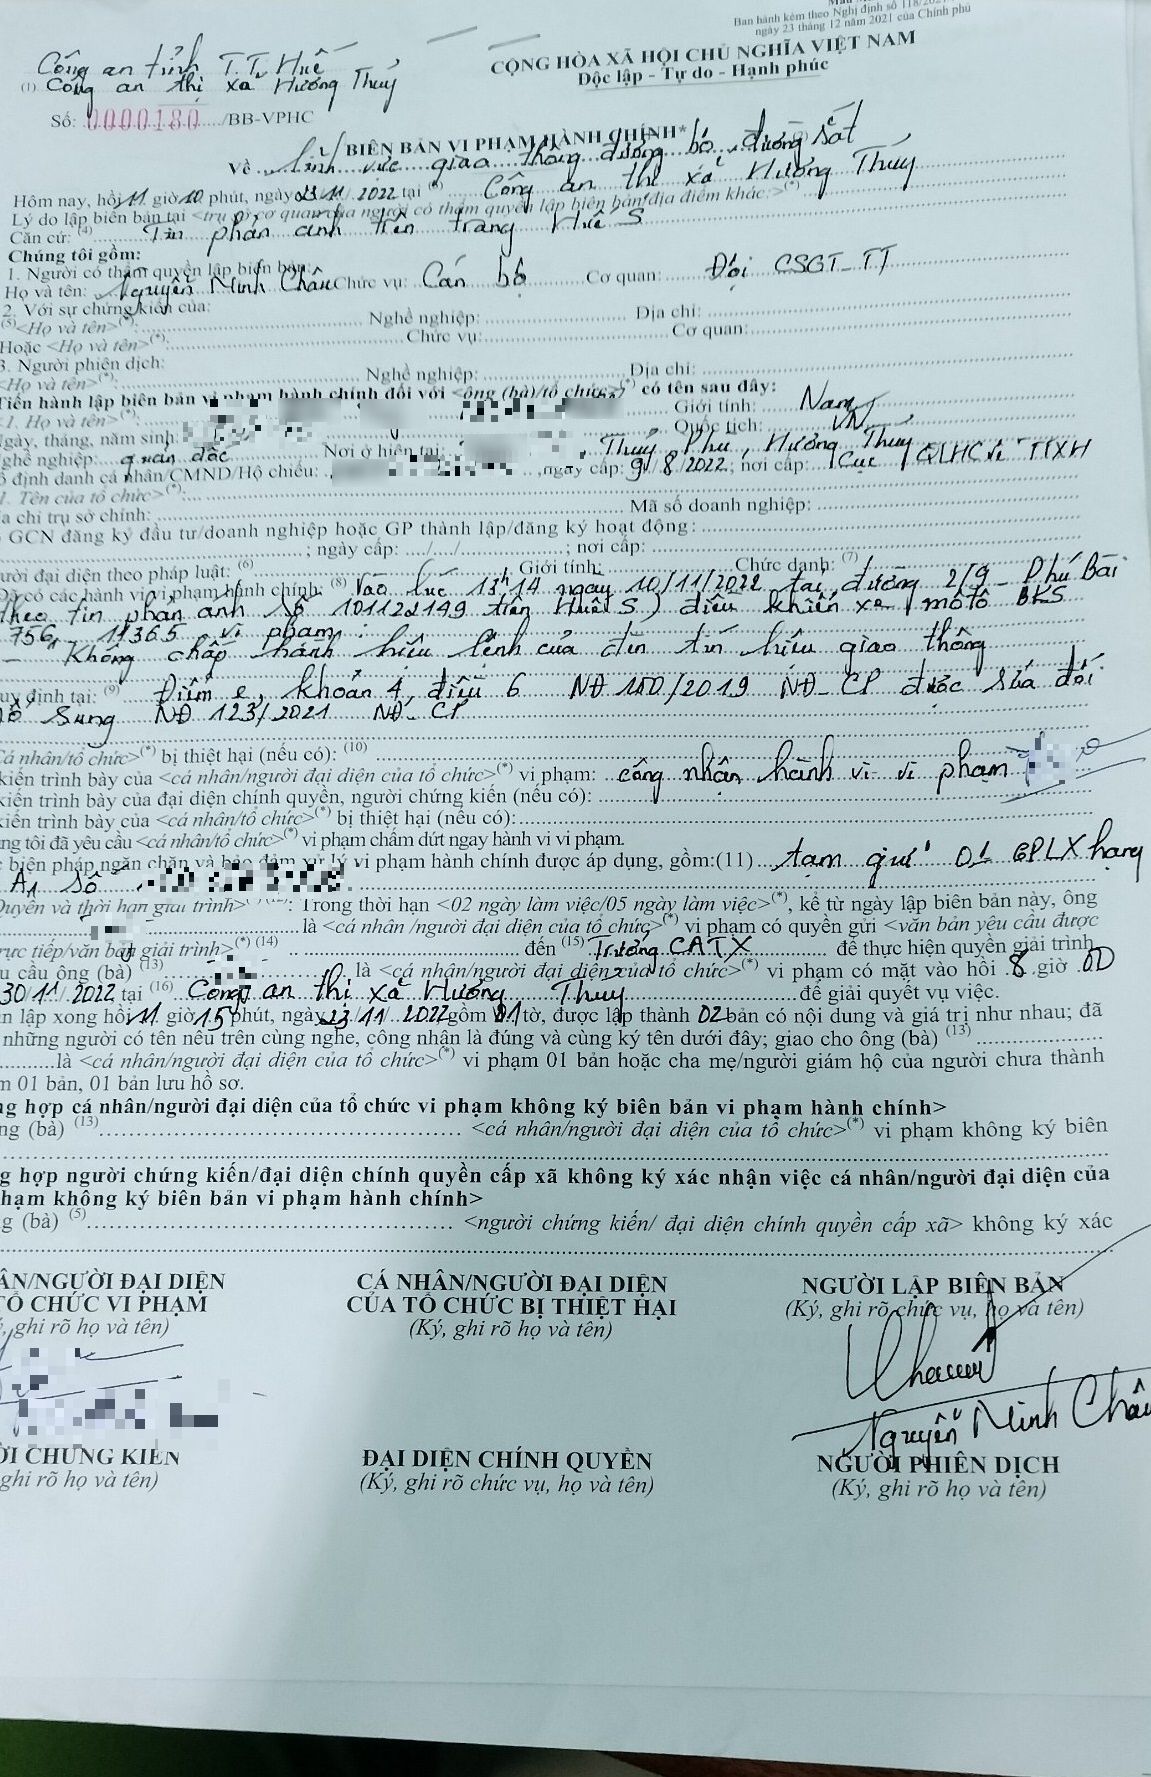 Ban hành kèm theo Nghị định số 118/2021
ngày 23 tháng 12 năm 2021 của Chính phủ
Công an tỉnh T.T. Huế
(1) Công an thị xã Hương Thủy
CỘNG HÒA XÃ HỘI CHỦ NGHĨA VIỆT NAM
Độc lập - Tự do - Hạnh phúc
Số: 0000180 /BB-VPHC
BIÊN BẢN VI PHẠM HÀNH CHÍNH*
Về lĩnh vực giao thông đường bộ, đường sắt
Hôm nay, hồi 11 giờ 10 phút, ngày 23/11/2022 tại Công an thị xã Hương Thủy
Lý do lập biên bản tại <trụ sở cơ quan của người có thẩm quyền lập biên bản/địa điểm khác>(*)
Căn cứ: (4) Tin phản ánh trên trang Huế S
Chúng tôi gồm:
1. Người có thẩm quyền lập biên bản:
Họ và tên: Nguyễn Minh Châu Chức vụ: Cán bộ Cơ quan: Đội CSGT-TT
2. Với sự chứng kiến của:
(5)<Họ và tên>(*): Nghề nghiệp: Địa chỉ:
Hoặc <Họ và tên>(*): Chức vụ: Cơ quan:
3. Người phiên dịch:
<Họ và tên>(*): Nghề nghiệp: Địa chỉ:
Tiến hành lập biên bản vi phạm hành chính đối với <ông (bà)/tổ chức>(*) có tên sau đây:
<1. Họ và tên>(*): Giới tính: Nam
Ngày, tháng, năm sinh: Quốc tịch: VN
nghề nghiệp: quản đốc Nơi ở hiện tại: Thủy Phù, Hương Thủy
ố định danh cá nhân/CMND/Hộ chiếu: , ngày cấp: 9/8/2022; nơi cấp: Cục QLHC về TTXH
1. Tên của tổ chức>(*):
a chỉ trụ sở chính: Mã số doanh nghiệp:
GCN đăng ký đầu tư/doanh nghiệp hoặc GP thành lập/đăng ký hoạt động:
; ngày cấp: ..../..../........; nơi cấp:
ười đại diện theo pháp luật: (6) Giới tính: Chức danh: (7)
Đã có các hành vi vi phạm hành chính: (8) Vào lúc 13h14 ngày 10/11/2022 tại đường 2/9 - Phú Bài
(theo tin phản ánh số 101122149 trên Huế S) điều khiển xe mô tô BKS
11365 vi phạm:
- Không chấp hành hiệu lệnh của đèn tín hiệu giao thông
uy định tại: (9) Điểm e, khoản 4, điều 6 NĐ 100/2019 NĐ-CP được sửa đổi
bổ sung NĐ 123/2021 NĐ-CP
Cá nhân/tổ chức>(*) bị thiệt hại (nếu có): (10)
kiến trình bày của <cá nhân/người đại diện của tổ chức>(*) vi phạm: công nhận hành vi vi phạm
kiến trình bày của đại diện chính quyền, người chứng kiến (nếu có):
kiến trình bày của <cá nhân/tổ chức>(*) bị thiệt hại (nếu có):
ng tôi đã yêu cầu <cá nhân/tổ chức>(*) vi phạm chấm dứt ngay hành vi vi phạm.
c biện pháp ngăn chặn và bảo đảm xử lý vi phạm hành chính được áp dụng, gồm:(11) tạm giữ 01 GPLX hạng
A1 số
Quyền và thời hạn giải trình> : Trong thời hạn <02 ngày làm việc/05 ngày làm việc>(*), kể từ ngày lập biên bản này, ông
là <cá nhân/người đại diện của tổ chức>(*) vi phạm có quyền gửi <văn bản yêu cầu được
trực tiếp/văn bản giải trình>(*) (14) đến (15) Trưởng CATX để thực hiện quyền giải trình.
u cầu ông (bà) (13) là <cá nhân/người đại diện của tổ chức>(*) vi phạm có mặt vào hồi 8 giờ 00
30/11/2022 tại (16) Công an thị xã Hương Thủy để giải quyết vụ việc.
n lập xong hồi 11 giờ 15 phút, ngày 23/11/2022 gồm 01 tờ, được lập thành 02 bản có nội dung và giá trị như nhau; đã
những người có tên nêu trên cùng nghe, công nhận là đúng và cùng ký tên dưới đây; giao cho ông (bà) (13)
là <cá nhân/người đại diện của tổ chức>(*) vi phạm 01 bản hoặc cha mẹ/người giám hộ của người chưa thành
n 01 bản, 01 bản lưu hồ sơ.
ng hợp cá nhân/người đại diện của tổ chức vi phạm không ký biên bản vi phạm hành chính>
ng (bà) (13) <cá nhân/người đại diện của tổ chức>(*) vi phạm không ký biên
g hợp người chứng kiến/đại diện chính quyền cấp xã không ký xác nhận việc cá nhân/người đại diện của
hạm không ký biên bản vi phạm hành chính>
g (bà) (5) <người chứng kiến/ đại diện chính quyền cấp xã> không ký xác
ÂN/NGƯỜI ĐẠI DIỆN CÁ NHÂN/NGƯỜI ĐẠI DIỆN NGƯỜI LẬP BIÊN BẢN
TỔ CHỨC VI PHẠM CỦA TỔ CHỨC BỊ THIỆT HẠI (Ký, ghi rõ chức vụ, họ và tên)
ý, ghi rõ họ và tên) (Ký, ghi rõ họ và tên)
Nguyễn Minh Châu
ỜI CHỨNG KIẾN ĐẠI DIỆN CHÍNH QUYỀN NGƯỜI PHIÊN DỊCH
ghi rõ họ và tên) (Ký, ghi rõ chức vụ, họ và tên) (Ký, ghi rõ họ và tên)